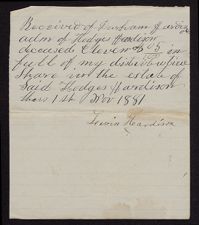 Received of Durham Hardison
adm of Hodges Hardison
deceased Eleven & 5 in
full of my distributive
share in the estate of
Said Hodges Hardison
this 1st Nov 1881
Irwin Hardison